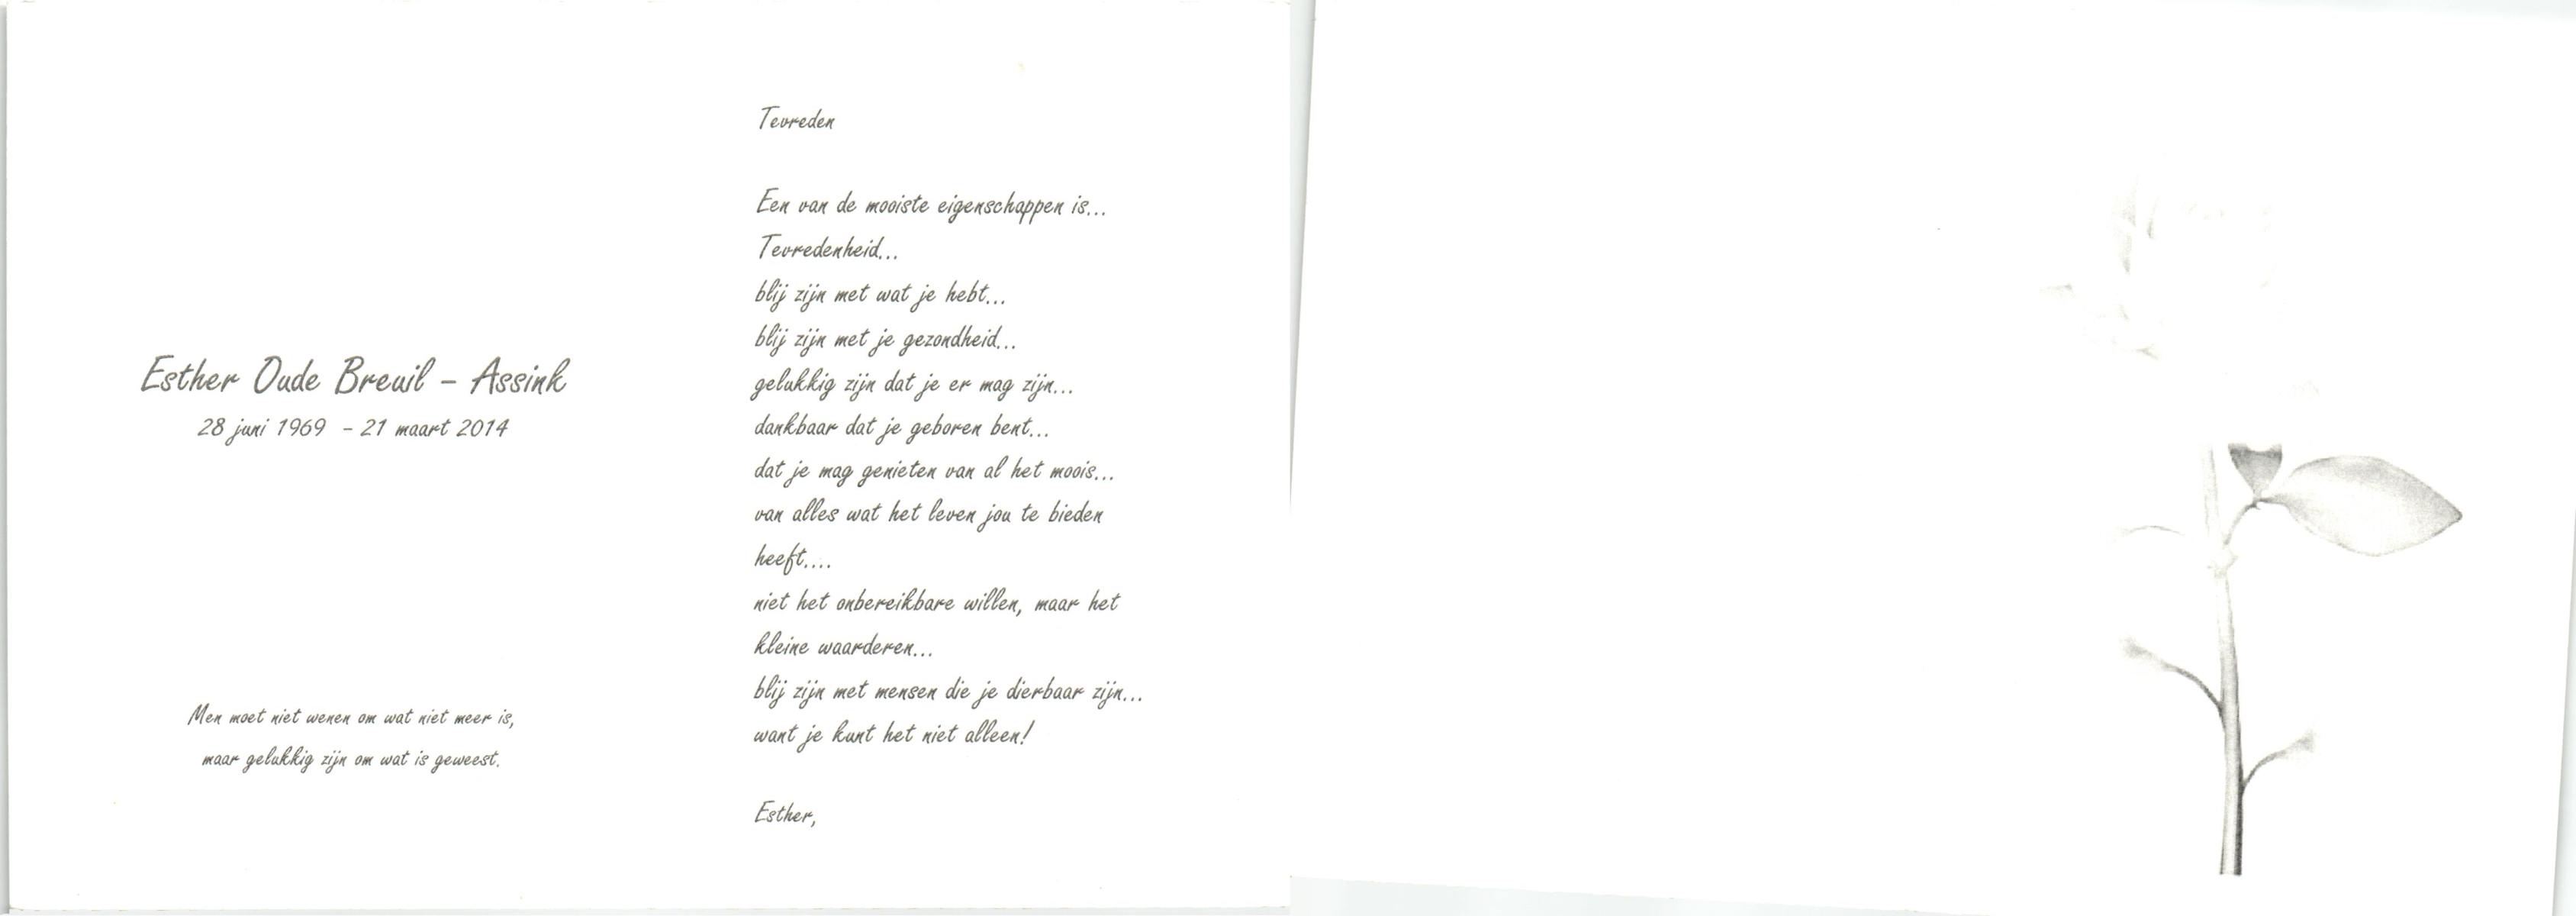 Esther Oude Breuil - Assink
28 juni 1969 - 21 maart 2014
Men moet niet wenen om wat niet meer is,
maar gelukkig zijn om wat is geweest.
Tevreden
Een van de mooiste eigenschappen is...
Tevredenheid...
blij zijn met wat je hebt...
blij zijn met je gezondheid...
gelukkig zijn dat je er mag zijn...
dankbaar dat je geboren bent...
dat je mag genieten van al het moois...
van alles wat het leven jou te bieden
heeft....
niet het onbereikbare willen, maar het
kleine waarderen...
blij zijn met mensen die je dierbaar zijn...
want je kunt het niet alleen!
Esther,